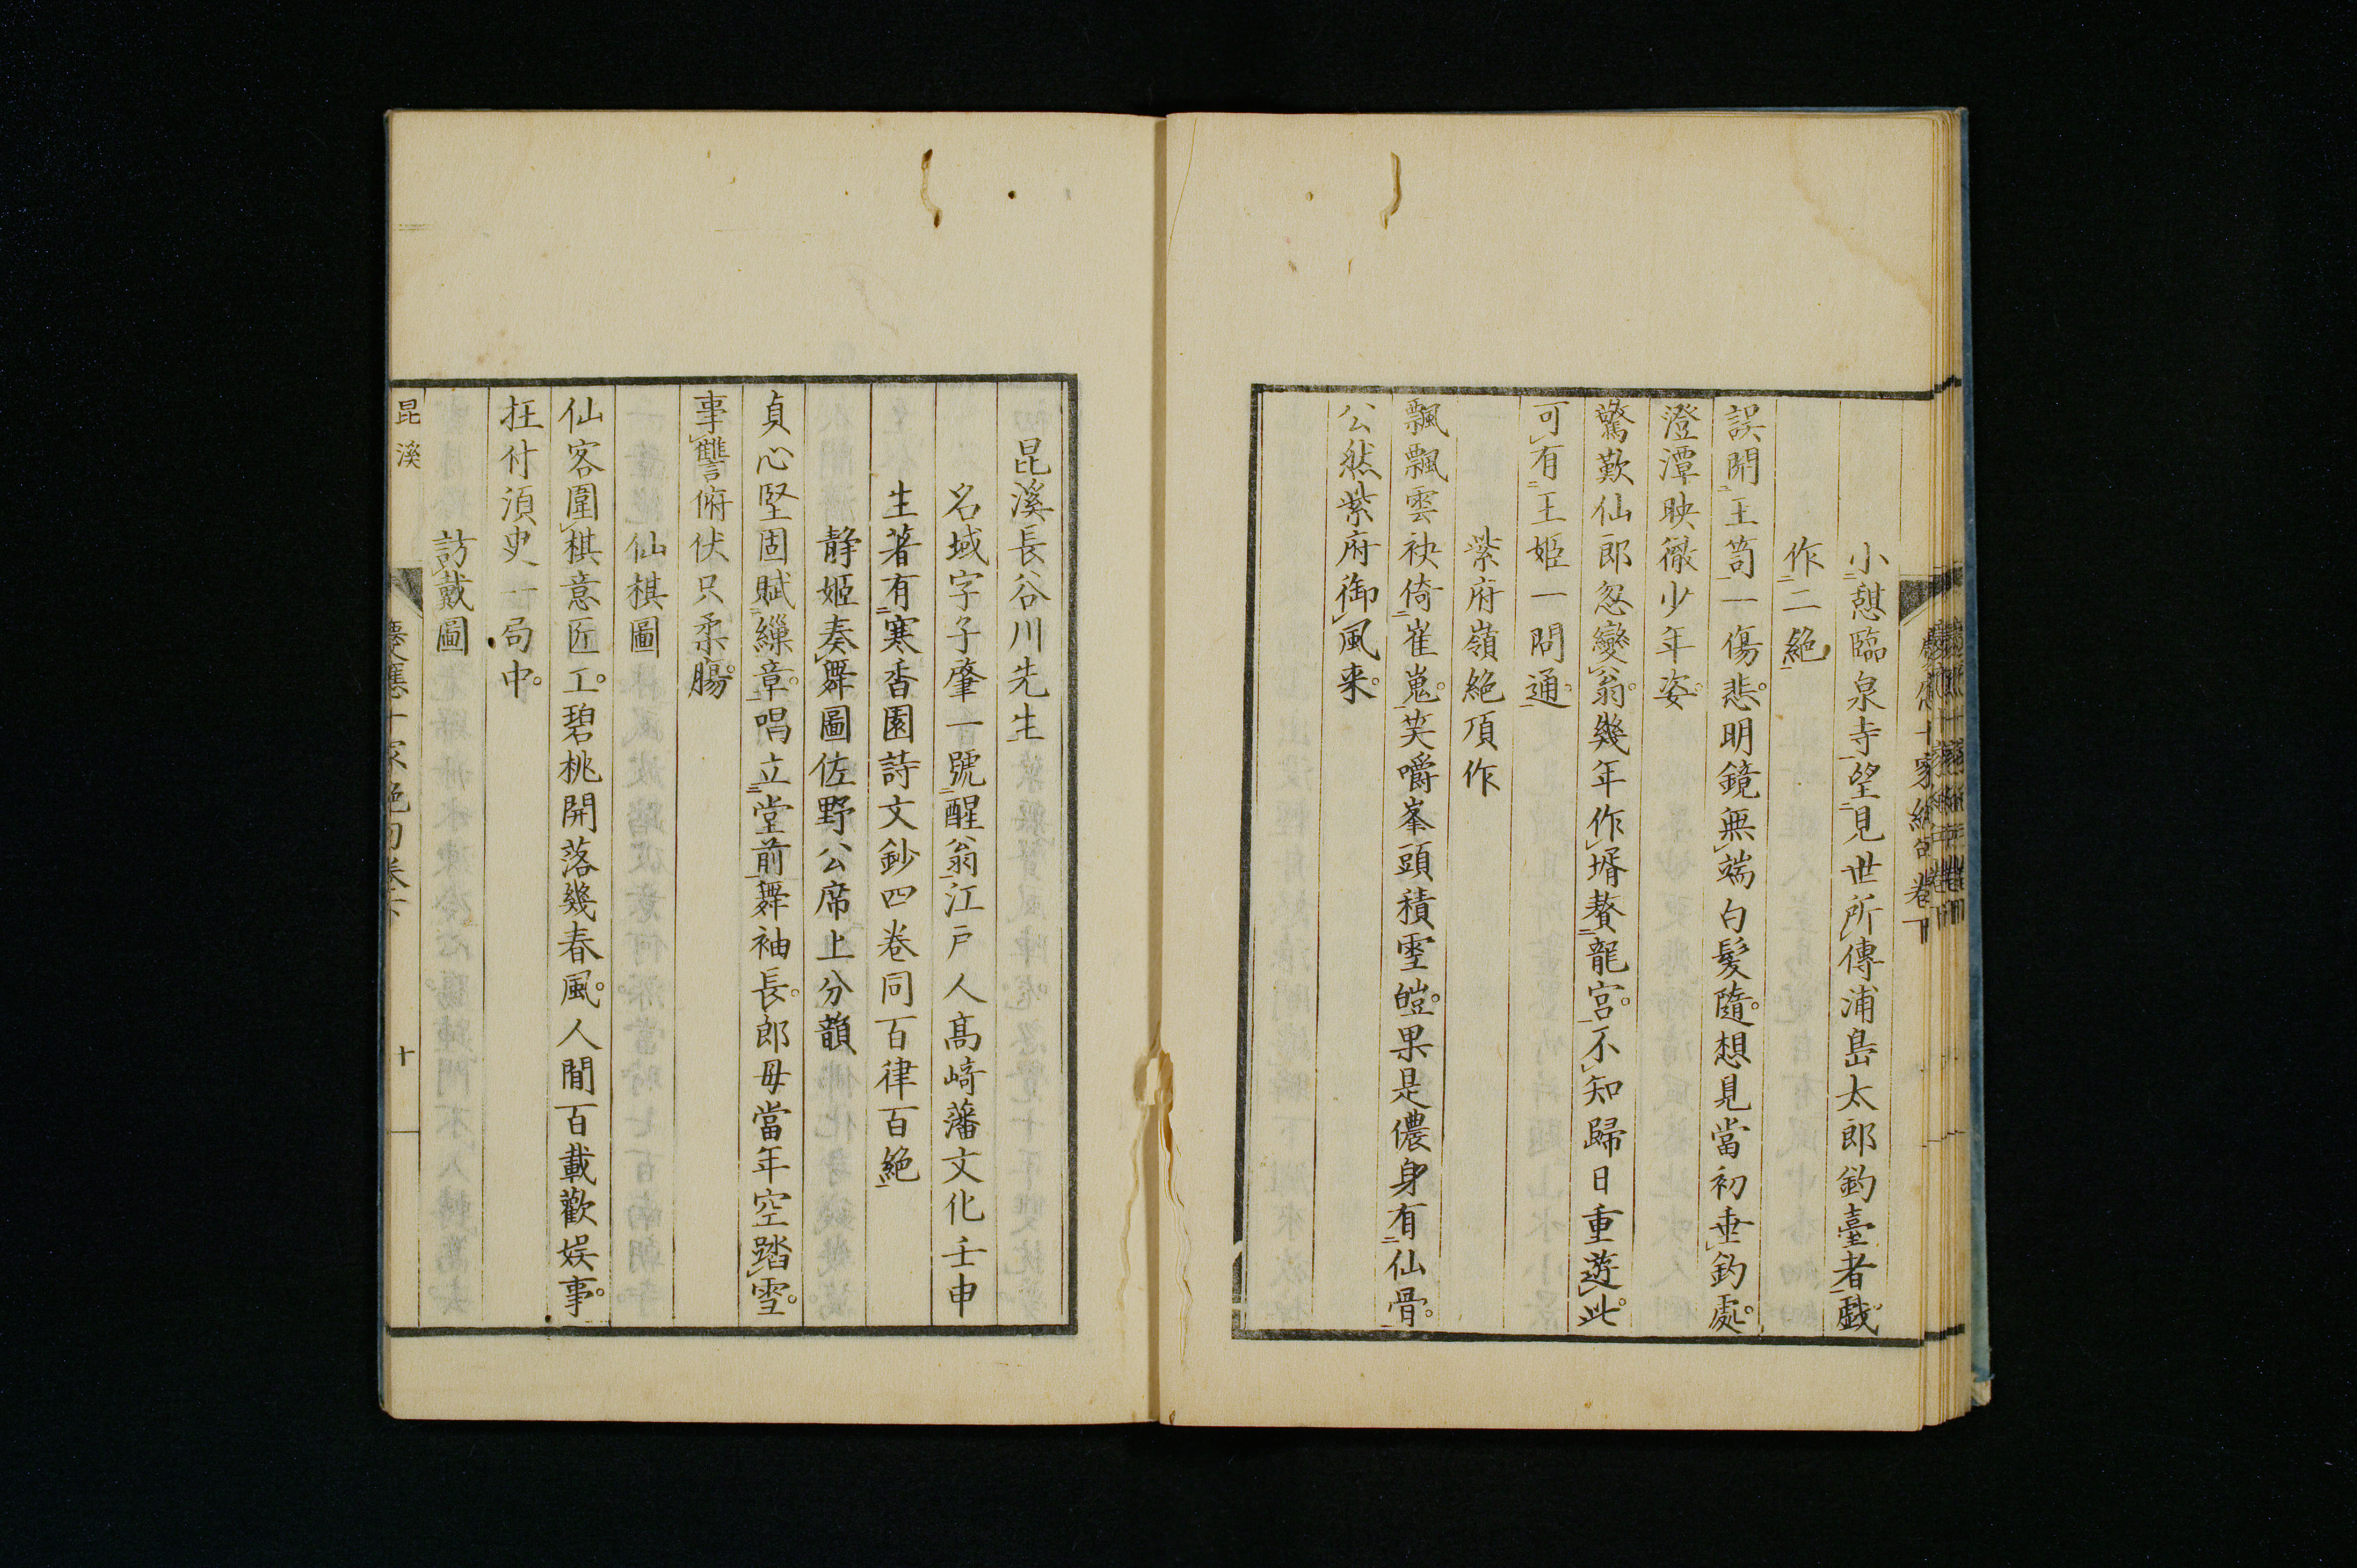 小憩臨泉寺望見世所傳浦島太郎釣臺者戲
作二絶
誤開玉笥一傷悲明鏡無端白髮隨想見當初垂釣處
澄潭映徹少年姿
驚歎仙郎忽變翁幾年作壻贅龍宮不知歸日重遊此
可有玉姬一問通
紫府嶺絶頂作
飄飄雲袂倚崔嵬笑嚼峯頭積雪皚果是儂身有仙骨
公然紫府御風來
昆溪長谷川先生
名域字子肇一號醒翁江戸人高﨑藩文化壬申
生著有寒香園詩文鈔四卷同百律百絶
靜姬奏舞圖佐野公席上分韻
貞心堅固賦繰章唱立堂前舞袖長郎毋當年空踏雪
事讐俯伏只柔腸
仙棋圖
仙客圍棋意匠工碧桃開落幾春風人間百載歡娛事
抂付湏臾一局中
訪戴圖
昆溪
慶應十家絶句卷下
十